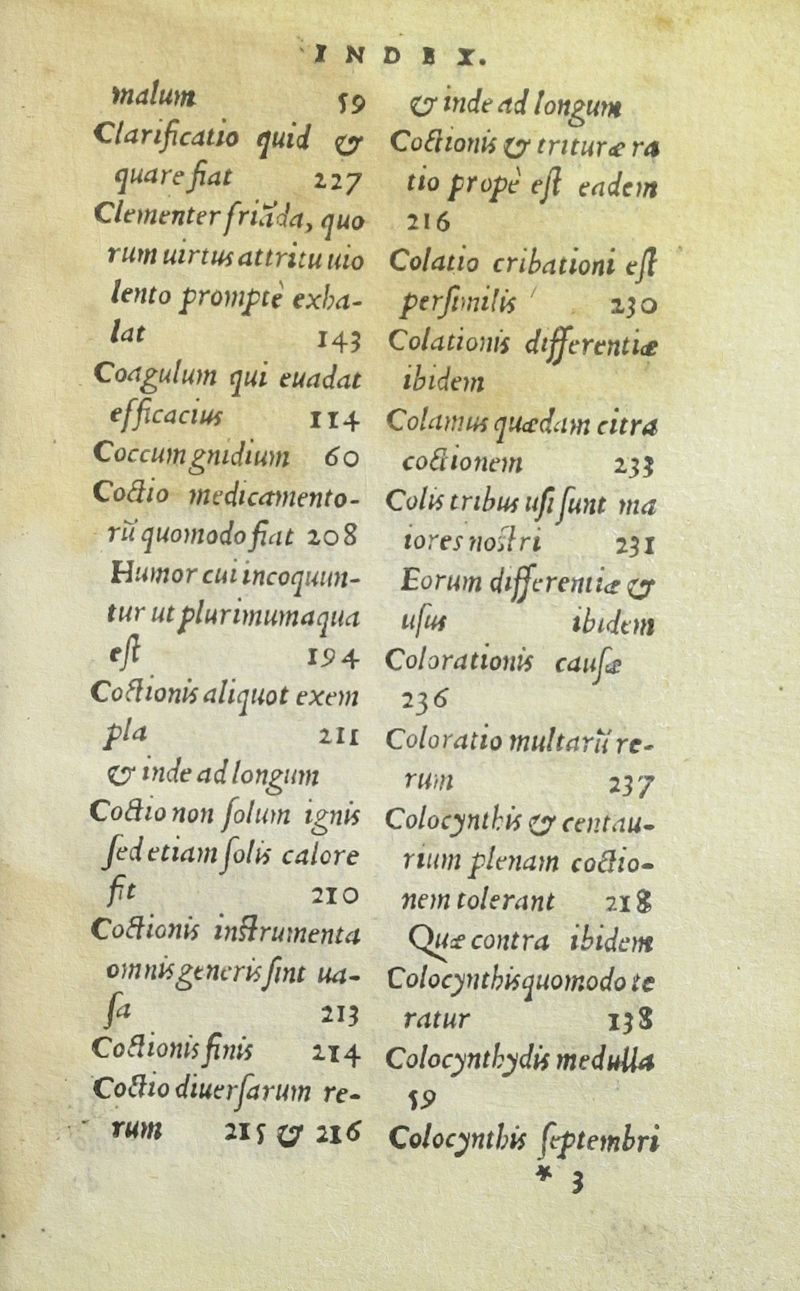 INDEX.
malum 59
Clarificatio quid &
quare fiat 227
Clementer friãda, quo
rum uirtus attritu uio
lento promptè exha-
lat 143
Coagulum qui euadat
efficacius 114
Coccum gnidium 60
Coctio medicamento-
rũ quomodo fiat 208
Humor cui incoquun-
tur ut plurimum aqua
eſt 194
Coctionis aliquot exem
pla 211
& inde ad longum
Coctio non ſolum ignis
ſed etiam ſolis calore
fit 210
Coctionis inſtrumenta
omnis generis ſint ua-
ſa 213
Coctionis finis 214
Coctio diuerſarum re-
rum 215 & 216
& inde ad longum
Coctionis & trituræ ra
tio propè eſt eadem
216
Colatio cribationi eſt
perſimilis 230
Colationis differentiæ
ibidem
Colamus quædam citra
coctionem 233
Colis tribus uſi ſunt ma
iores noſtri 231
Eorum differentiæ &
uſus ibidem
Colorationis cauſæ
236
Coloratio multarũ re-
rum 237
Colocynthis & centau-
rium plenam coctio-
nem tolerant 218
Quæ contra ibidem
Colocynthis quomodo te
ratur 138
Colocynthydis medulla
59
Colocynthis ſeptembri
* 3